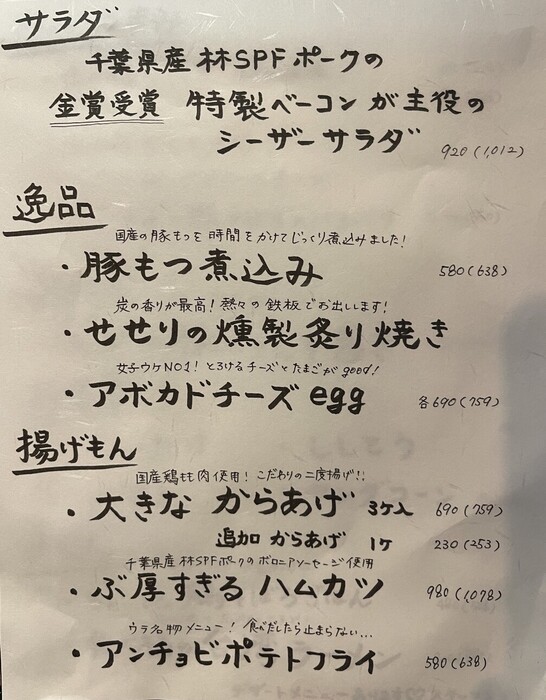 サラダ
千葉県産 林SPFポークの
金賞受賞 特製ベーコン が主役の
シーザーサラダ 920(1,012)
逸品
国産の豚もつを 時間をかけてじっくり煮込みました!
・豚もつ煮込み 580(638)
炭の香りが最高! 熱々の鉄板でお出しします!
・せせりの燻製炙り焼き
女子ウケNO1! とろけるチーズとたまごがgood!
・アボカドチーズ egg 各690(759)
揚げもん
国産鶏もも肉使用! こだわりの二度揚げ!!
・大きな からあげ 3ケ入 690(759)
追加 からあげ 1ケ 230(253)
千葉県産 林SPFポークのボロニアソーセージ使用
・ぶ厚すぎる ハムカツ 980(1,078)
ウラ名物メニュー! 食べだしたら止まらない...
・アンチョビポテトフライ 580(638)